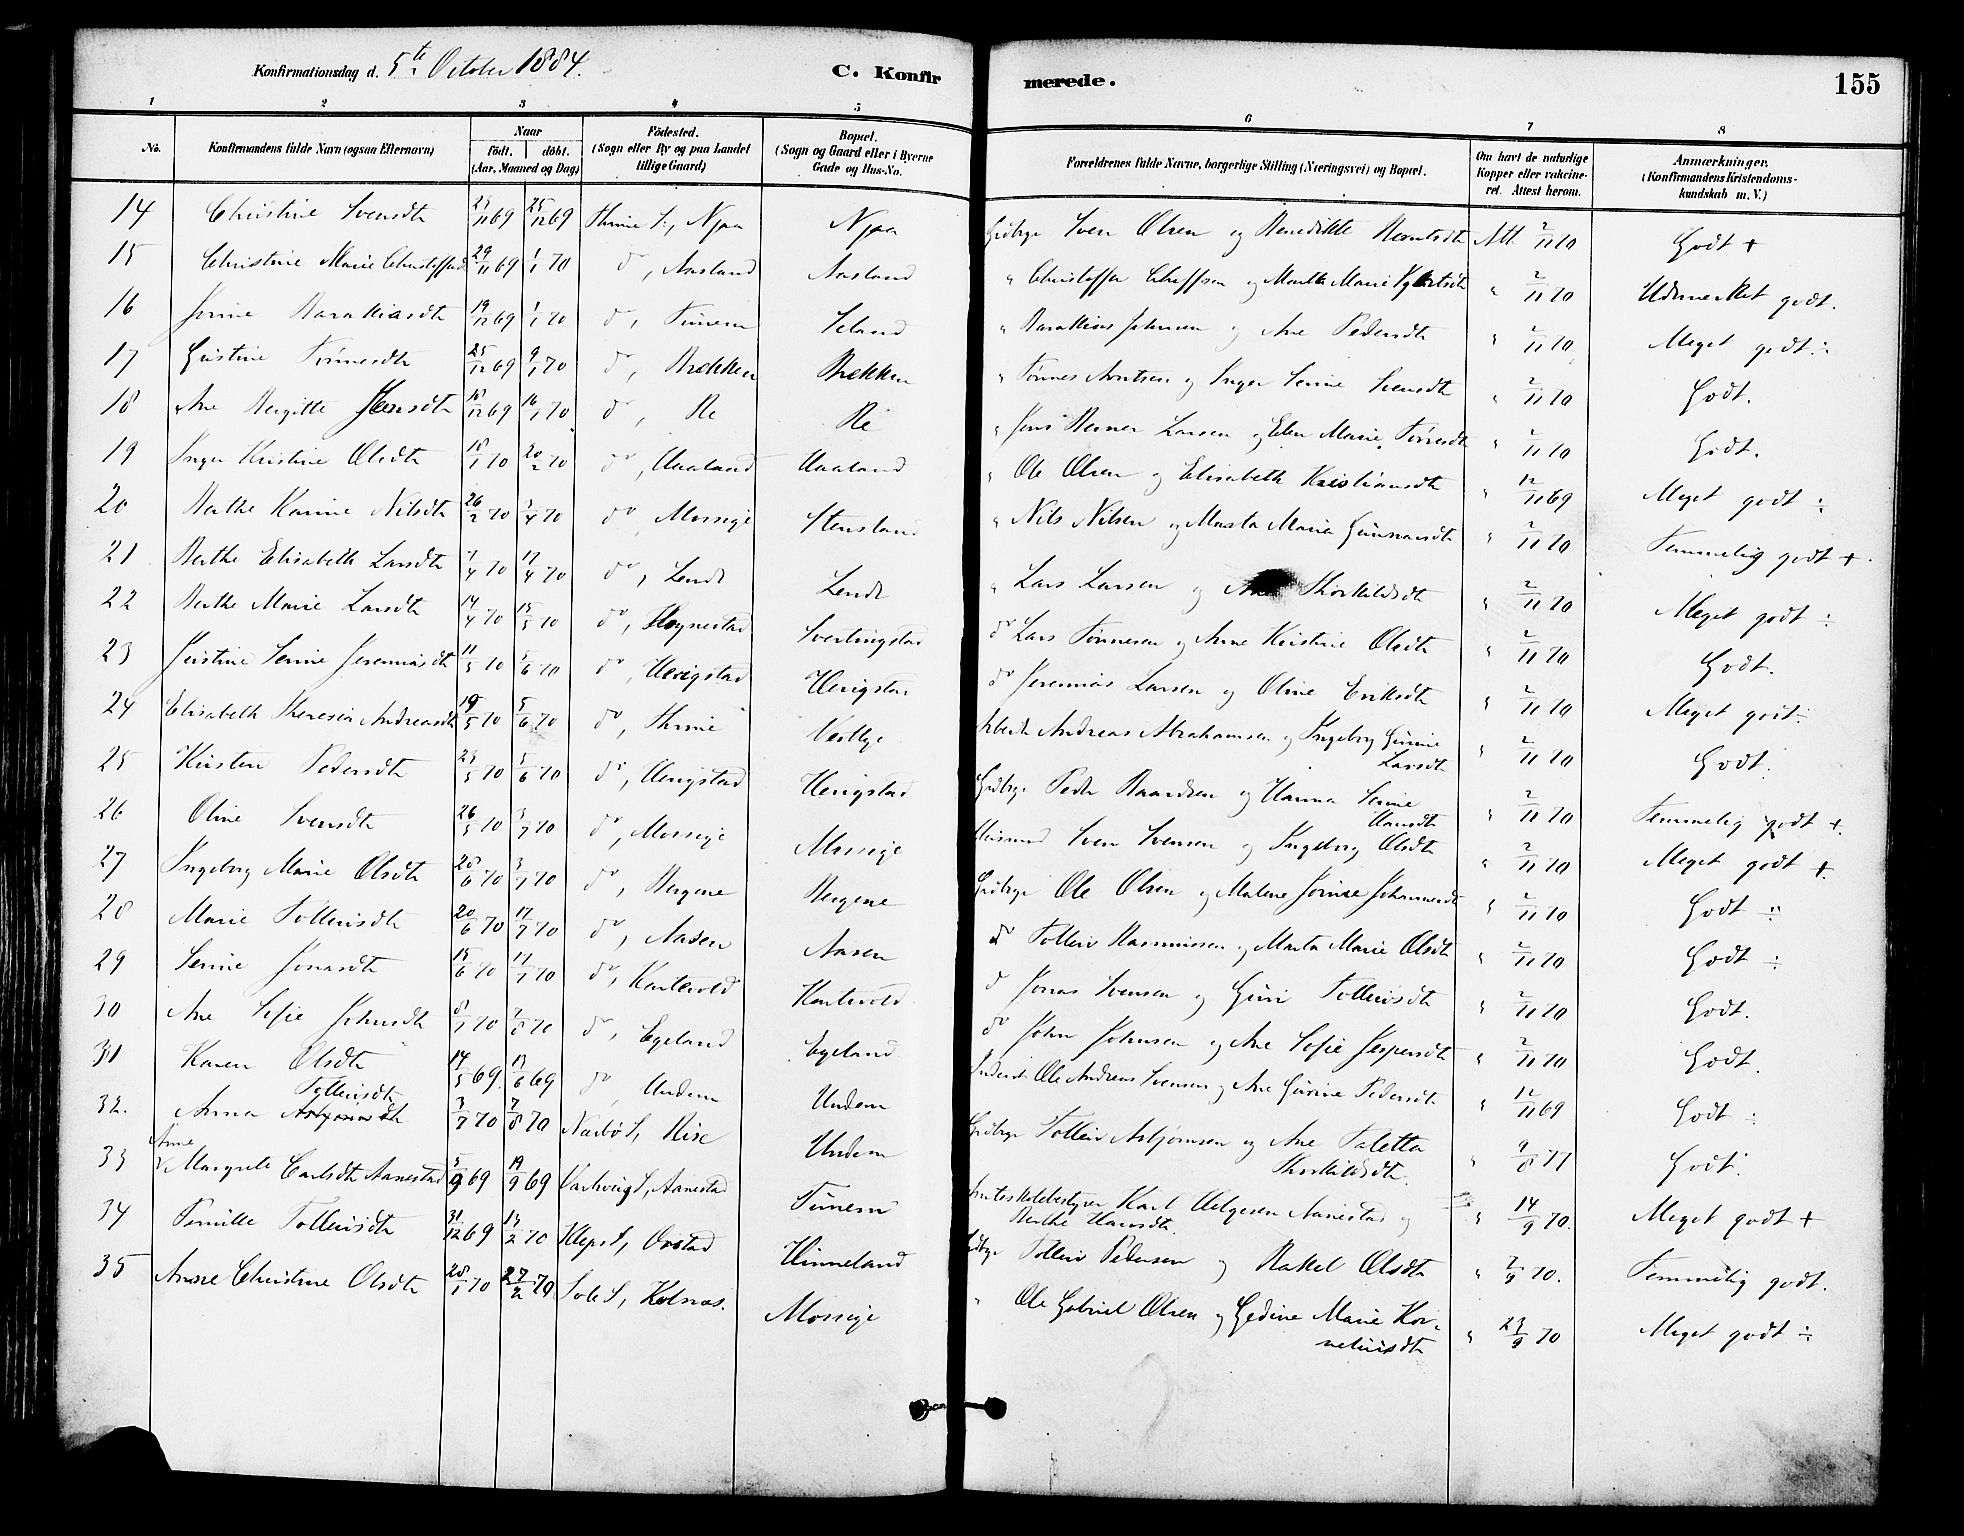 Konfirmationsdag d. 5te October 1884. C. Konfir merede. 155
1 2 3 4 5 6 7 8
No. Konfirmandens fulde Navn (ogsaa Efternavn) Naar født. døbt. (Aar, Maaned og Dag) Fødested. (Sogn eller By og paa Landet tillige Gaard) Bopæl. (Sogn og Gaard eller i Byerne Gade og Hus-No. Forældrenes fulde Navne, borgerlige Stilling (Næringsvei) og Bopæl. Om havt de naturlige Kopper eller vakcineret. Attest herom. Anmærkninger. (Konfirmandens Kristendomskundskab m. V.)
14 Christine Svensdtr 23/11 69 25/12 69 Thime S., Njaa Njaa Grdbrgr Sven Olsen og Benedikte Berntsdtr Att. 2/11 70 Godt +
15 Christine Marie Christoffersdtr 29/11 69 1/1 70 do, Aasland Aasland " Christoffer og Marthe Marie " 2/11 70 Udmerket godt.
16 Jorine Barakiasdtr 19/12 69 1/1 70 do, Tunem Seland " Barakias Johnsen og Ane Pedersdtr " 2/11 70 Meget godt ÷
17 Gustine Tönnesdtr 25/12 69 9/1 70 do, Brekken Brekken " Tönnes Arntsen og Inger Serine Svensdtr " 2/11 70 Godt.
18 Ane Bergitte Jensdtr 18/12 69 16/1 70 do, Re Re " Jens Larsen og Elen Marie " 2/11 70 Godt.
19 Inger Kristine Olsdtr 18/1 70 20/2 70 do, Haaland Haaland " Ole Olsen og Elisabeth Kristiansdtr " 12/11 69 Meget godt ÷
20 Berthe Karine Nilsdtr 26/2 70 3/4 70 do, Mossige Stensland " Nils Nilsen og Marta Maria Gunnarsdtr " 2/11 70 Temmelig godt +
21 Berthe Elisabeth Larsdtr 7/4 70 17/4 70 do, Lende Lende " Lars Larsen og Thorkildsdtr " 2/11 70 Meget godt ÷
22 Berthe Marie Larsdtr 14/4 70 15/5 70 do, Hognestad Svertingstad do Lars Tönnesen og Anne Kristine Olsdtr " 2/11 70 Godt.
23 Justine Serine Jeremiasdtr 11/5 70 5/6 70 do, Herigstad Herigstad do Jeremias Larsen og Oline Eriksdtr " 2/11 70 Meget godt ÷
24 Elisabeth Theresia Andreasdtr 19/5 70 5/6 70 do, Thime Vestlye Arbeid. Andreas Abrahamsen og Ingeborg Gurine Larsdtr " 2/11 70 Godt.
25 Kirsten Pedersdtr 23/5 70 5/6 70 do, Herigstad Herigstad Grdbrgr Peder Baardsen og Hanna Serine Hansdtr " 2/11 70 Temmelig godt +.
26 Oline Svensdtr 26/5 70 3/7 70 do, Mossige Mossige Husmand Sven Svensen og Ingeborg Olsdtr " 2/11 70 Meget godt +.
27 Ingeborg Marie Olsdtr 28/6 70 3/7 70 do, Bergene Bergene Grdbrgr Ole Olsen og Malene Jorine Johannesdtr " 2/11 70 Godt ÷
28 Marie Tollevsdtr 20/6 70 17/7 70 do, Aasen Aasen do Tollev Rasmussen og Marta Marie Olsdtr " 2/11 70 Godt ÷
29 Serine Jonasdtr 15/6 70 17/7 70 do, Kartevold Kartevold do Jonas Svensen og Guri Tollevsdtr " 2/11 70 Godt.
30 Ane Sofie Johnsdtr 8/7 70 7/8 70 do, Egeland Egeland do John Johnsen og Ane Sofie Jespersdtr " 2/11 70 Godt.
31 Karen Olsdtr 14/5 69. 13/6 69 do, Undem Undem Inderst Ole Andreas Svensen og Ane Gurine Pedersdtr " 12/11 69 Godt ÷
32. Anna Tollevsdtr 3/7 70 7/8 70 Narbø S, Rise Undem Grdbrgr Tollev Asbjörnsen og Ane Taletta Thorkildsdtr. " 9/8 77 Godt.
33 Anne Margrete Carlsdtr Aanestad 5/9 69 19/9 69 Varhoug S, Aanestad Tunem Amtsskolebestyrer Karl Helgesen Aanestad og Berthe Hansdtr. " 14/9 70. Meget godt +
34 Pernille Tollevsdtr 31/12 69 13/2 70 Klep S, Orstad Hinneland Grdbrgr Tollev Pedersen og Rakel Olsdtr " 7/9 70. Temmelig godt.
35 Anne Christine Olsdtr 28/1 70 27/2 70 Sole S, Kolnas. Mossige " Ole Gabriel Olsen og Gedine Marie Korneliusdtr " 23/9 70 Meget godt ÷